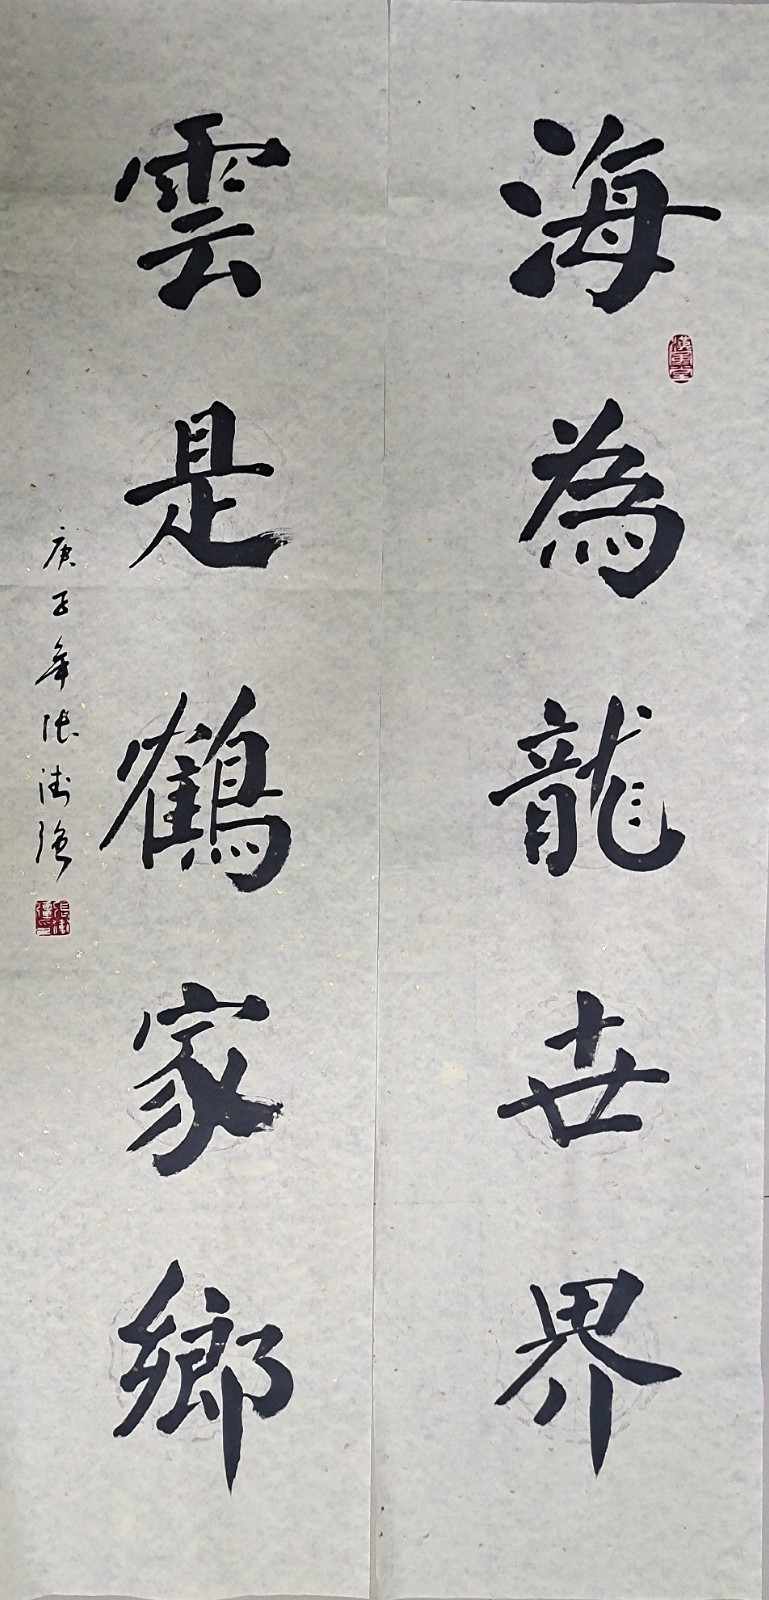 海為龍世界
雲是鶴家鄉
庚子年張衛強